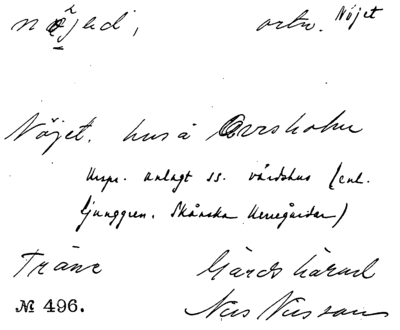 nöjəd, ortn. Nöjet
Nöjet. hus å Ovesholm
Urspr. anlagt ss. värdshus (enl.
Ljunggren. Skånska Herregårdar)
Träne Gärds härad
№ 496. Nils Nilsson